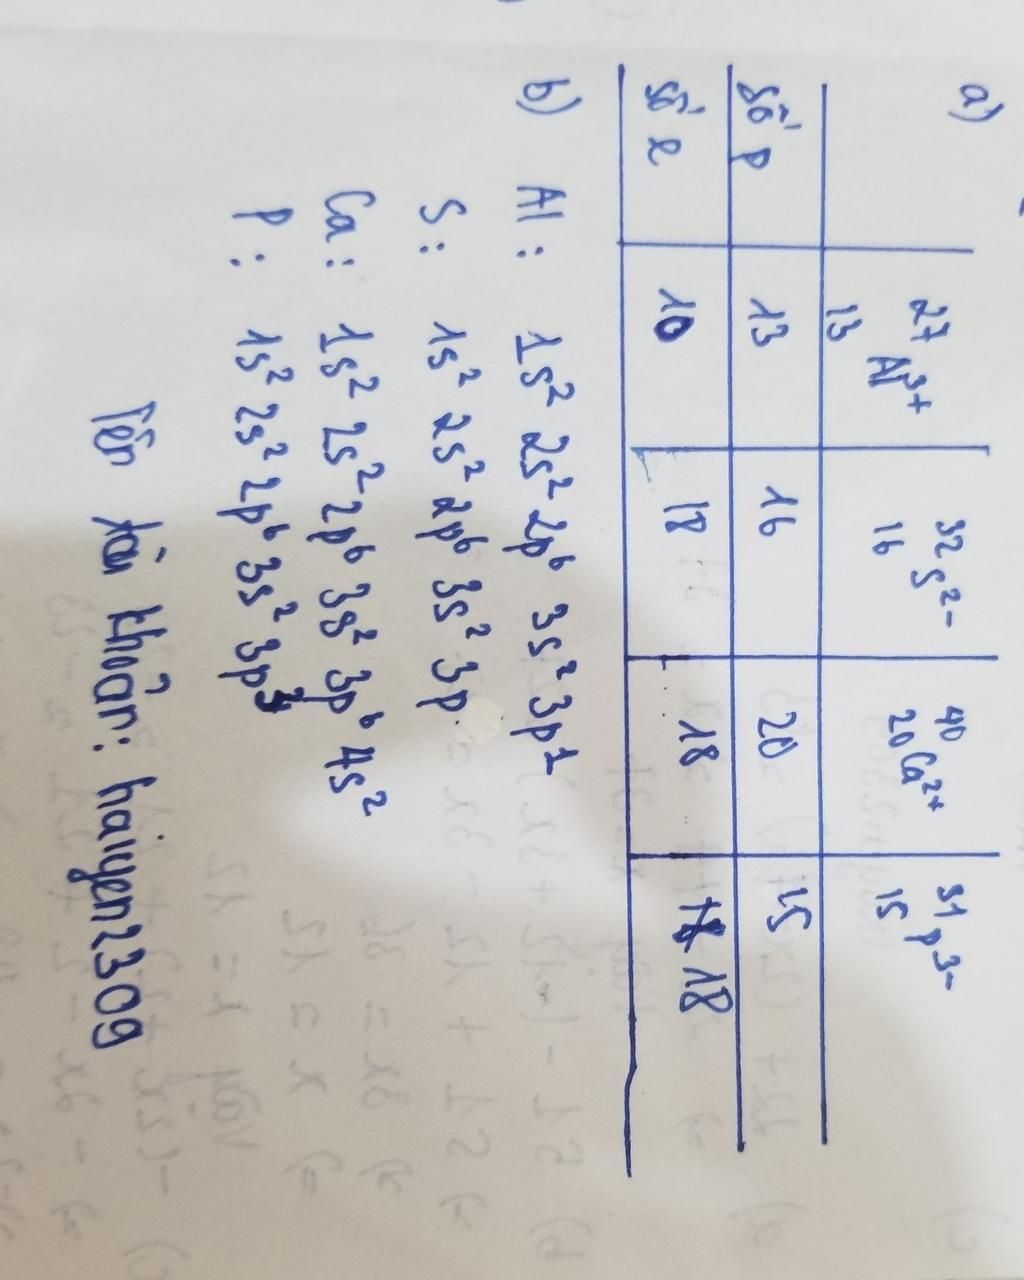 a)
27 32 40 31
13 Al³⁺ 16 S²⁻ 20 Ca²⁺ 15 P³⁻
số p 13 16 20 15
số e 10 18 18 18
b) Al : 1s² 2s² 2p⁶ 3s² 3p¹
S : 1s² 2s² 2p⁶ 3s² 3p
Ca : 1s² 2s² 2p⁶ 3s² 3p⁶ 4s²
P : 1s² 2s² 2p⁶ 3s² 3p³
Tên tài khoản: haiyen2309